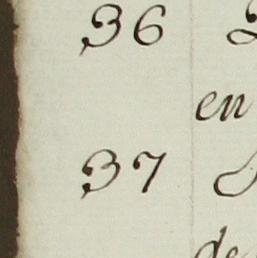 36
en
37
de